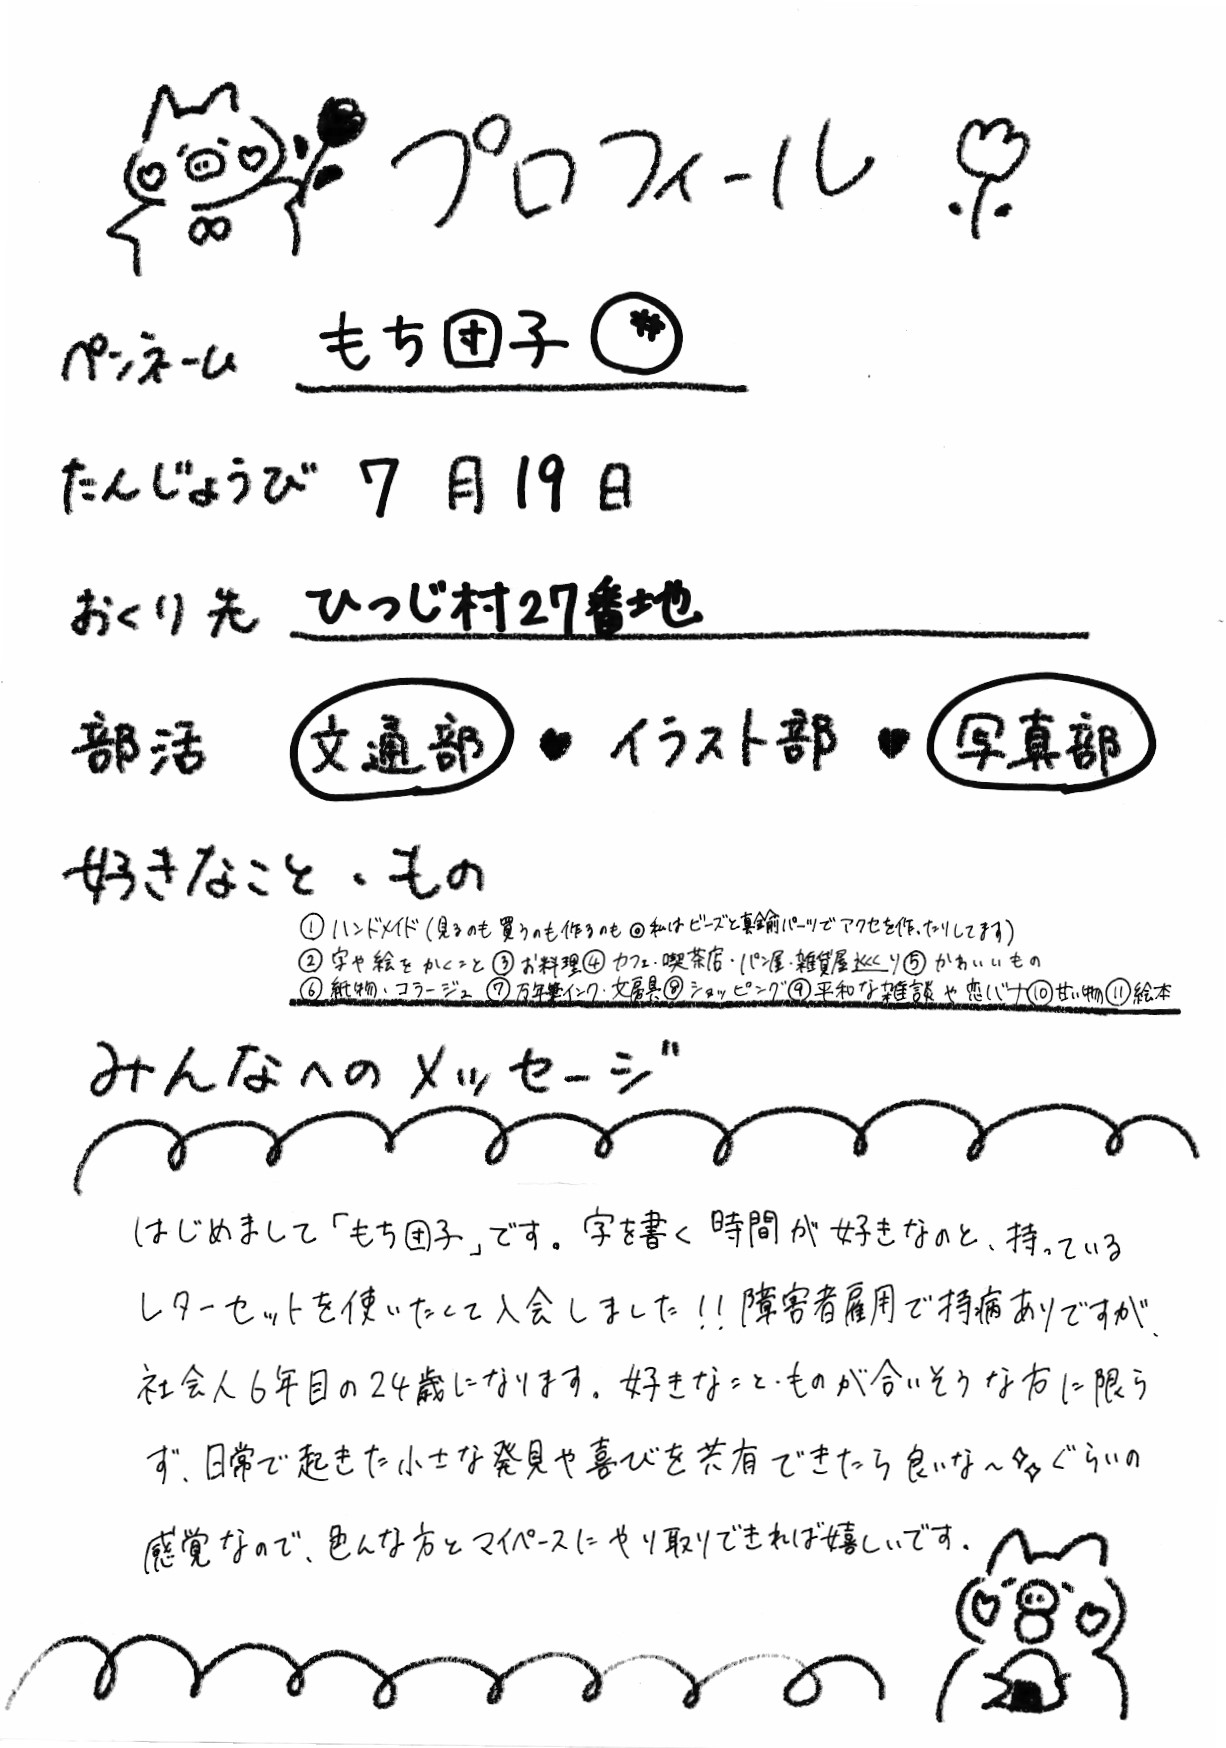 プロフィール
ペンネーム もち団子
たんじょうび 7月19日
おくり先 ひつじ村27番地
部活 文通部♥イラスト部♥写真部
好きなこと・もの
①ハンドメイド(見るのも買うのも作るのも◎私はビーズと真鍮パーツでアクセを作ったりしてます)
②字や絵をかくこと③お料理④カフェ・喫茶店・パン屋・雑貨屋巡り⑤かわいいもの
⑥紙物・コラージュ ⑦万年筆インク・文房具⑧ショッピング⑨平和な雑談や恋バナ⑩甘い物⑪絵本
みんなへのメッセージ
はじめまして「もち団子」です。字を書く時間が好きなのと、持っている
レターセットを使いたくて入会しました!!障害者雇用で持病ありですが、
社会人6年目の24歳になります。好きなこと・ものが合いそうな方に限ら
ず、日常で起きた小さな発見や喜びを共有できたら良いな〜ぐらいの
感覚なので、色んな方とマイペースにやり取りできれば嬉しいです。